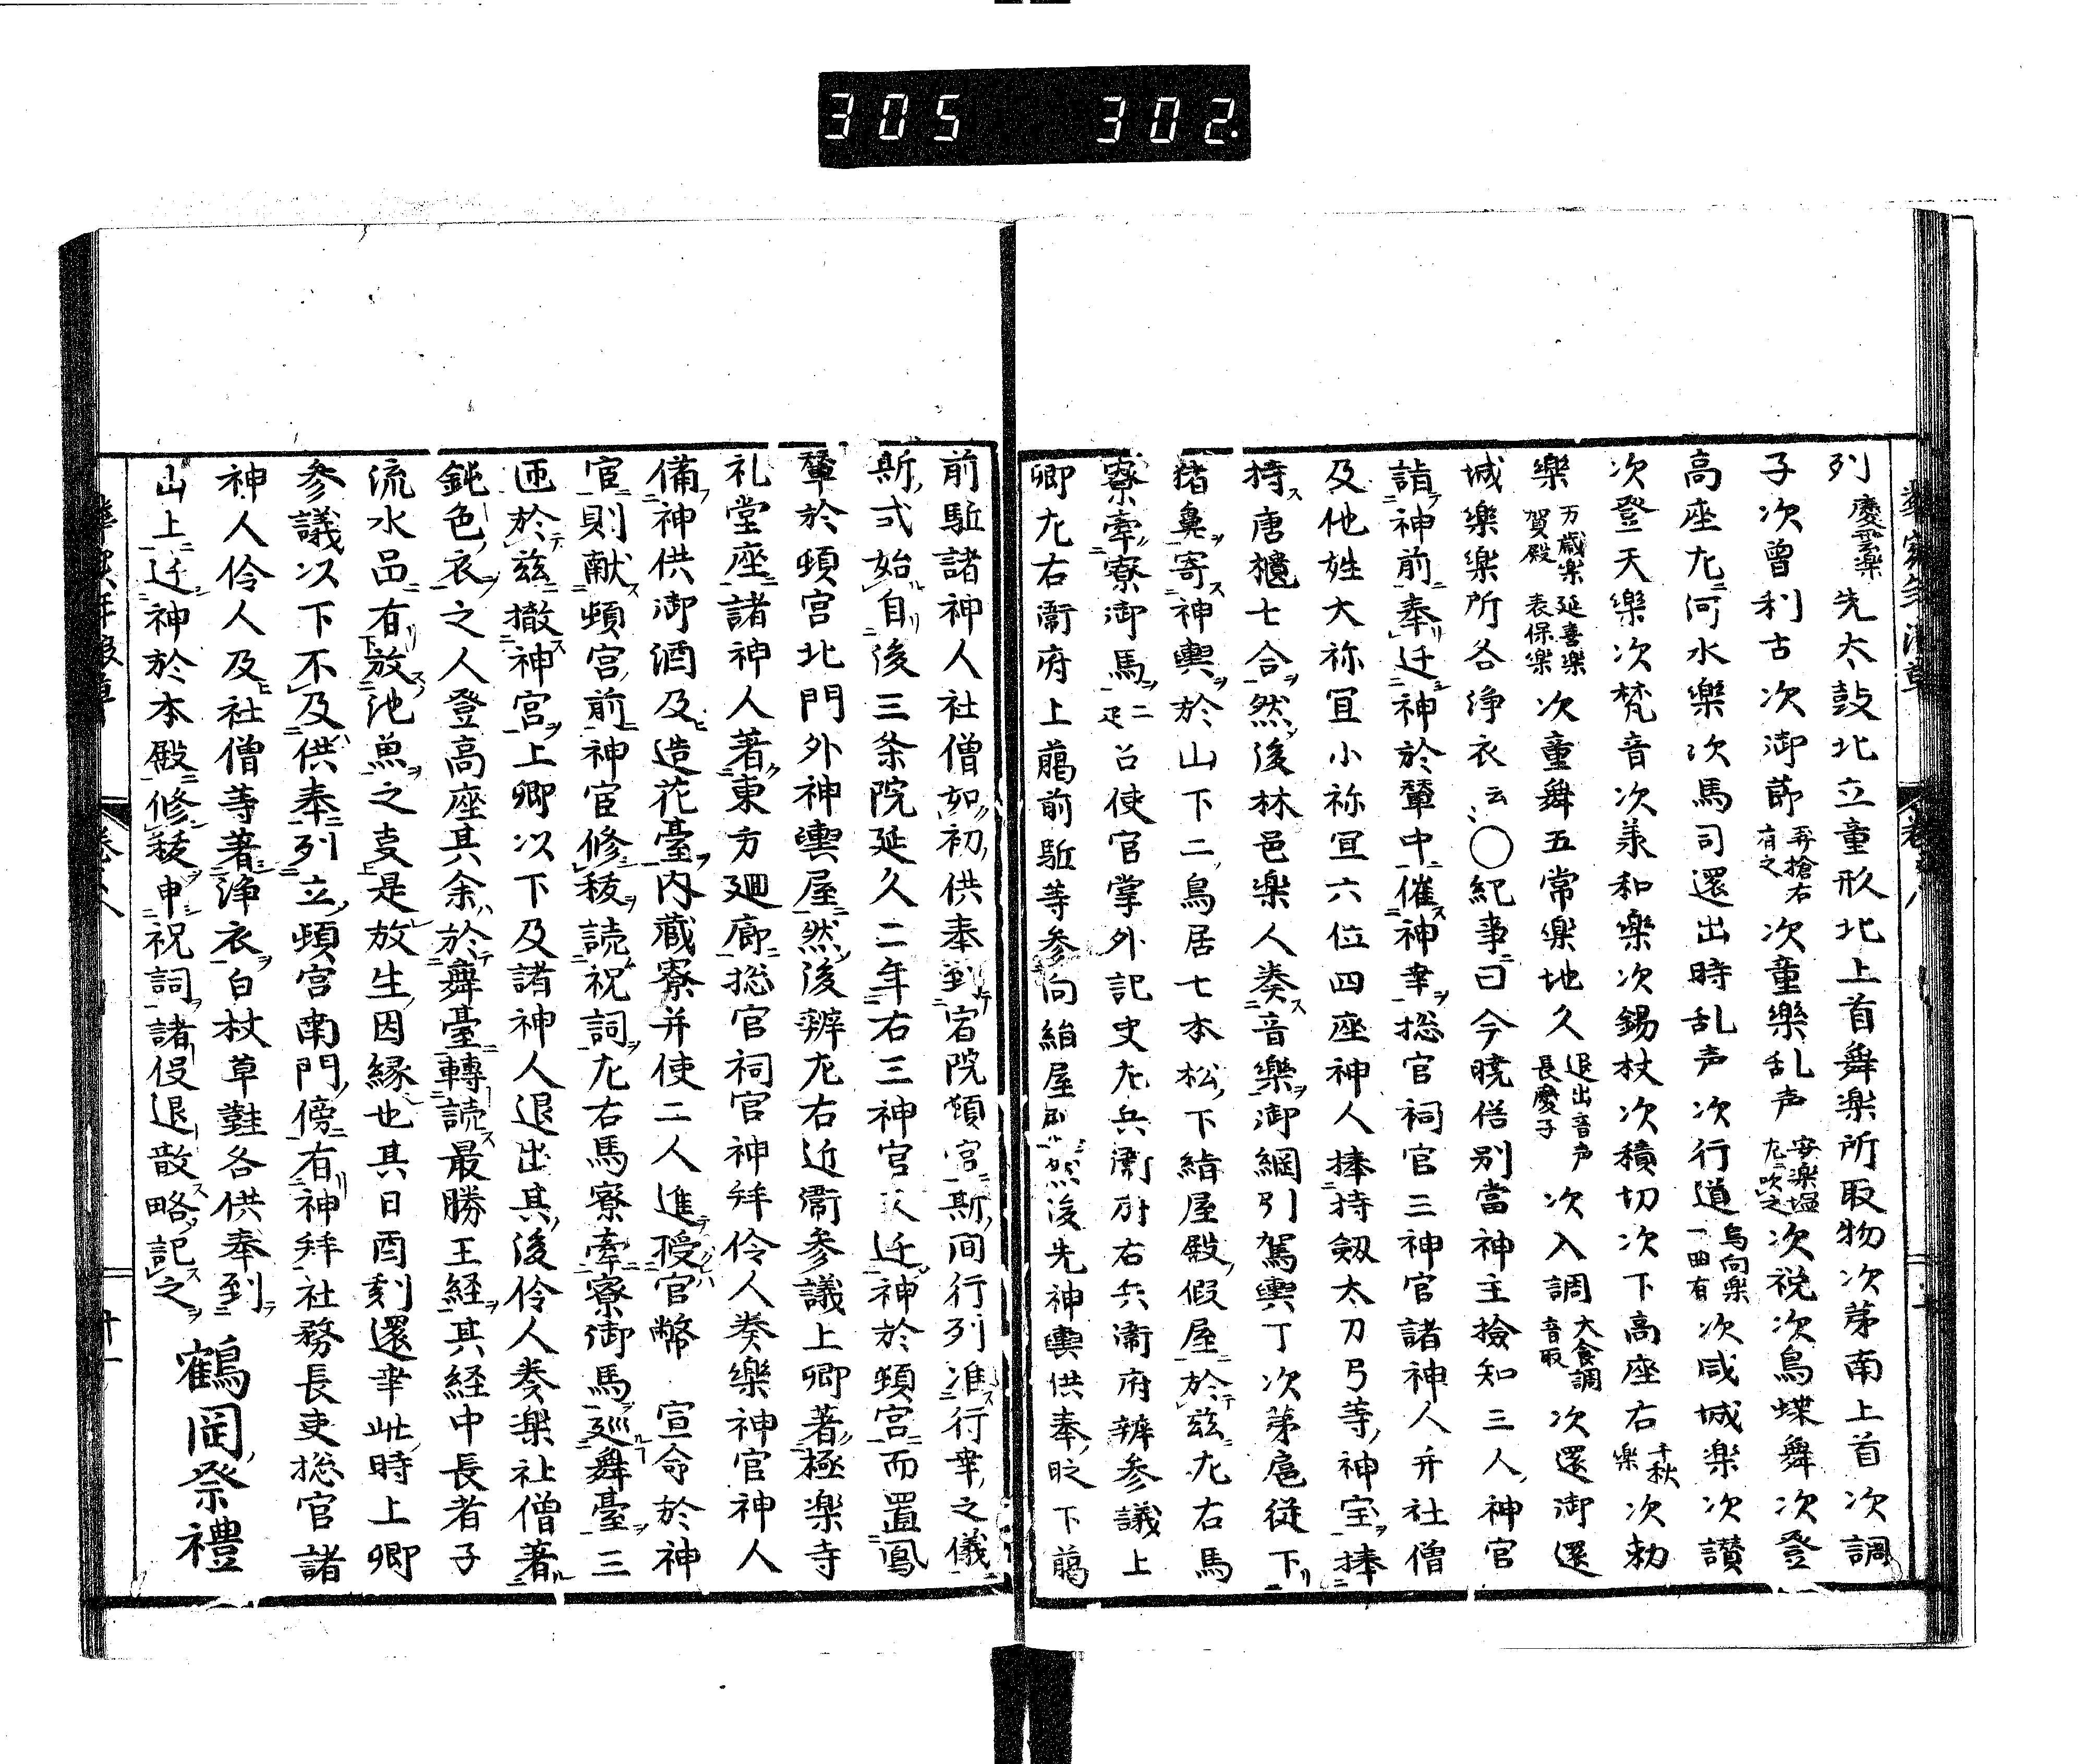 305 302
列慶雲楽先太鼓北立童形北上首舞楽所取物次第南上首次調
子次曽利古次御莭再搶右有之次童樂乱声安楽塩左吹之次祱次鳥蝶舞次登
高座左河水樂次馬司還出時乱声次行道鳥向楽一曲有次咸城楽次讃
次登天樂次梵音次羕和樂次錫杖次積切次下高座右千秋楽次勅
楽万歳楽延喜楽賀殿表保楽次童舞五常楽地久退出音声長慶子次入調大食調音取次還御還
城樂樂所各浄衣云〻○紀事曰今暁俗別當神主撿知三人神官
詣神前奉迁神於輦中催神幸捴官祠官三神官諸神人并社僧
及他姓大祢冝小祢冝六位四座神人捧持劔太刀弓等神宝捧
持唐櫃七合然後林邑楽人奏音樂御綱引駕輿丁次第扈従下
猪鼻寄神輿於山下二鳥居七本松下絹屋殿假屋於茲左右馬
寮牽寮御馬二疋召使官掌外記史左兵衛府右兵衛府辨参議上
卿左右衛府上﨟前駈等参向絹屋然後先神輿供奉次下﨟
前駈諸神人社僧如初供奉到宿院頓宮斯間行列准行幸之儀
斯式始自後三条院延久二年右三神官迁神於頓宮而置鳳
輦於頓宮北門外神輿屋然後辨左右近衛参議上卿著極楽寺
礼堂座諸神人著東方廻廊捴官祠官神拝伶人奏樂神官神人
備神供御酒及造花臺内蔵寮并使二人進授官幣宣命於神
官則献頓宮前神官修秡読祝詞左右馬寮牽寮御馬廵舞臺三
匝於兹撤神宮上卿以下及諸神人退出其後伶人奏楽社僧著
鈍色衣之人登高座其余於舞臺轉読最勝王経其経中長者子
流水品有放池魚之叓是放生因縁也其日酉刻還幸此時上卿
参議以下不及供奉列立頓宮南門傍有神拝社務長吏捴官諸
神人伶人及社僧等著浄衣白杖草鞋各供奉到
山上迁神於本殿修秡申祝詞諸役退散略記之 鶴岡祭禮